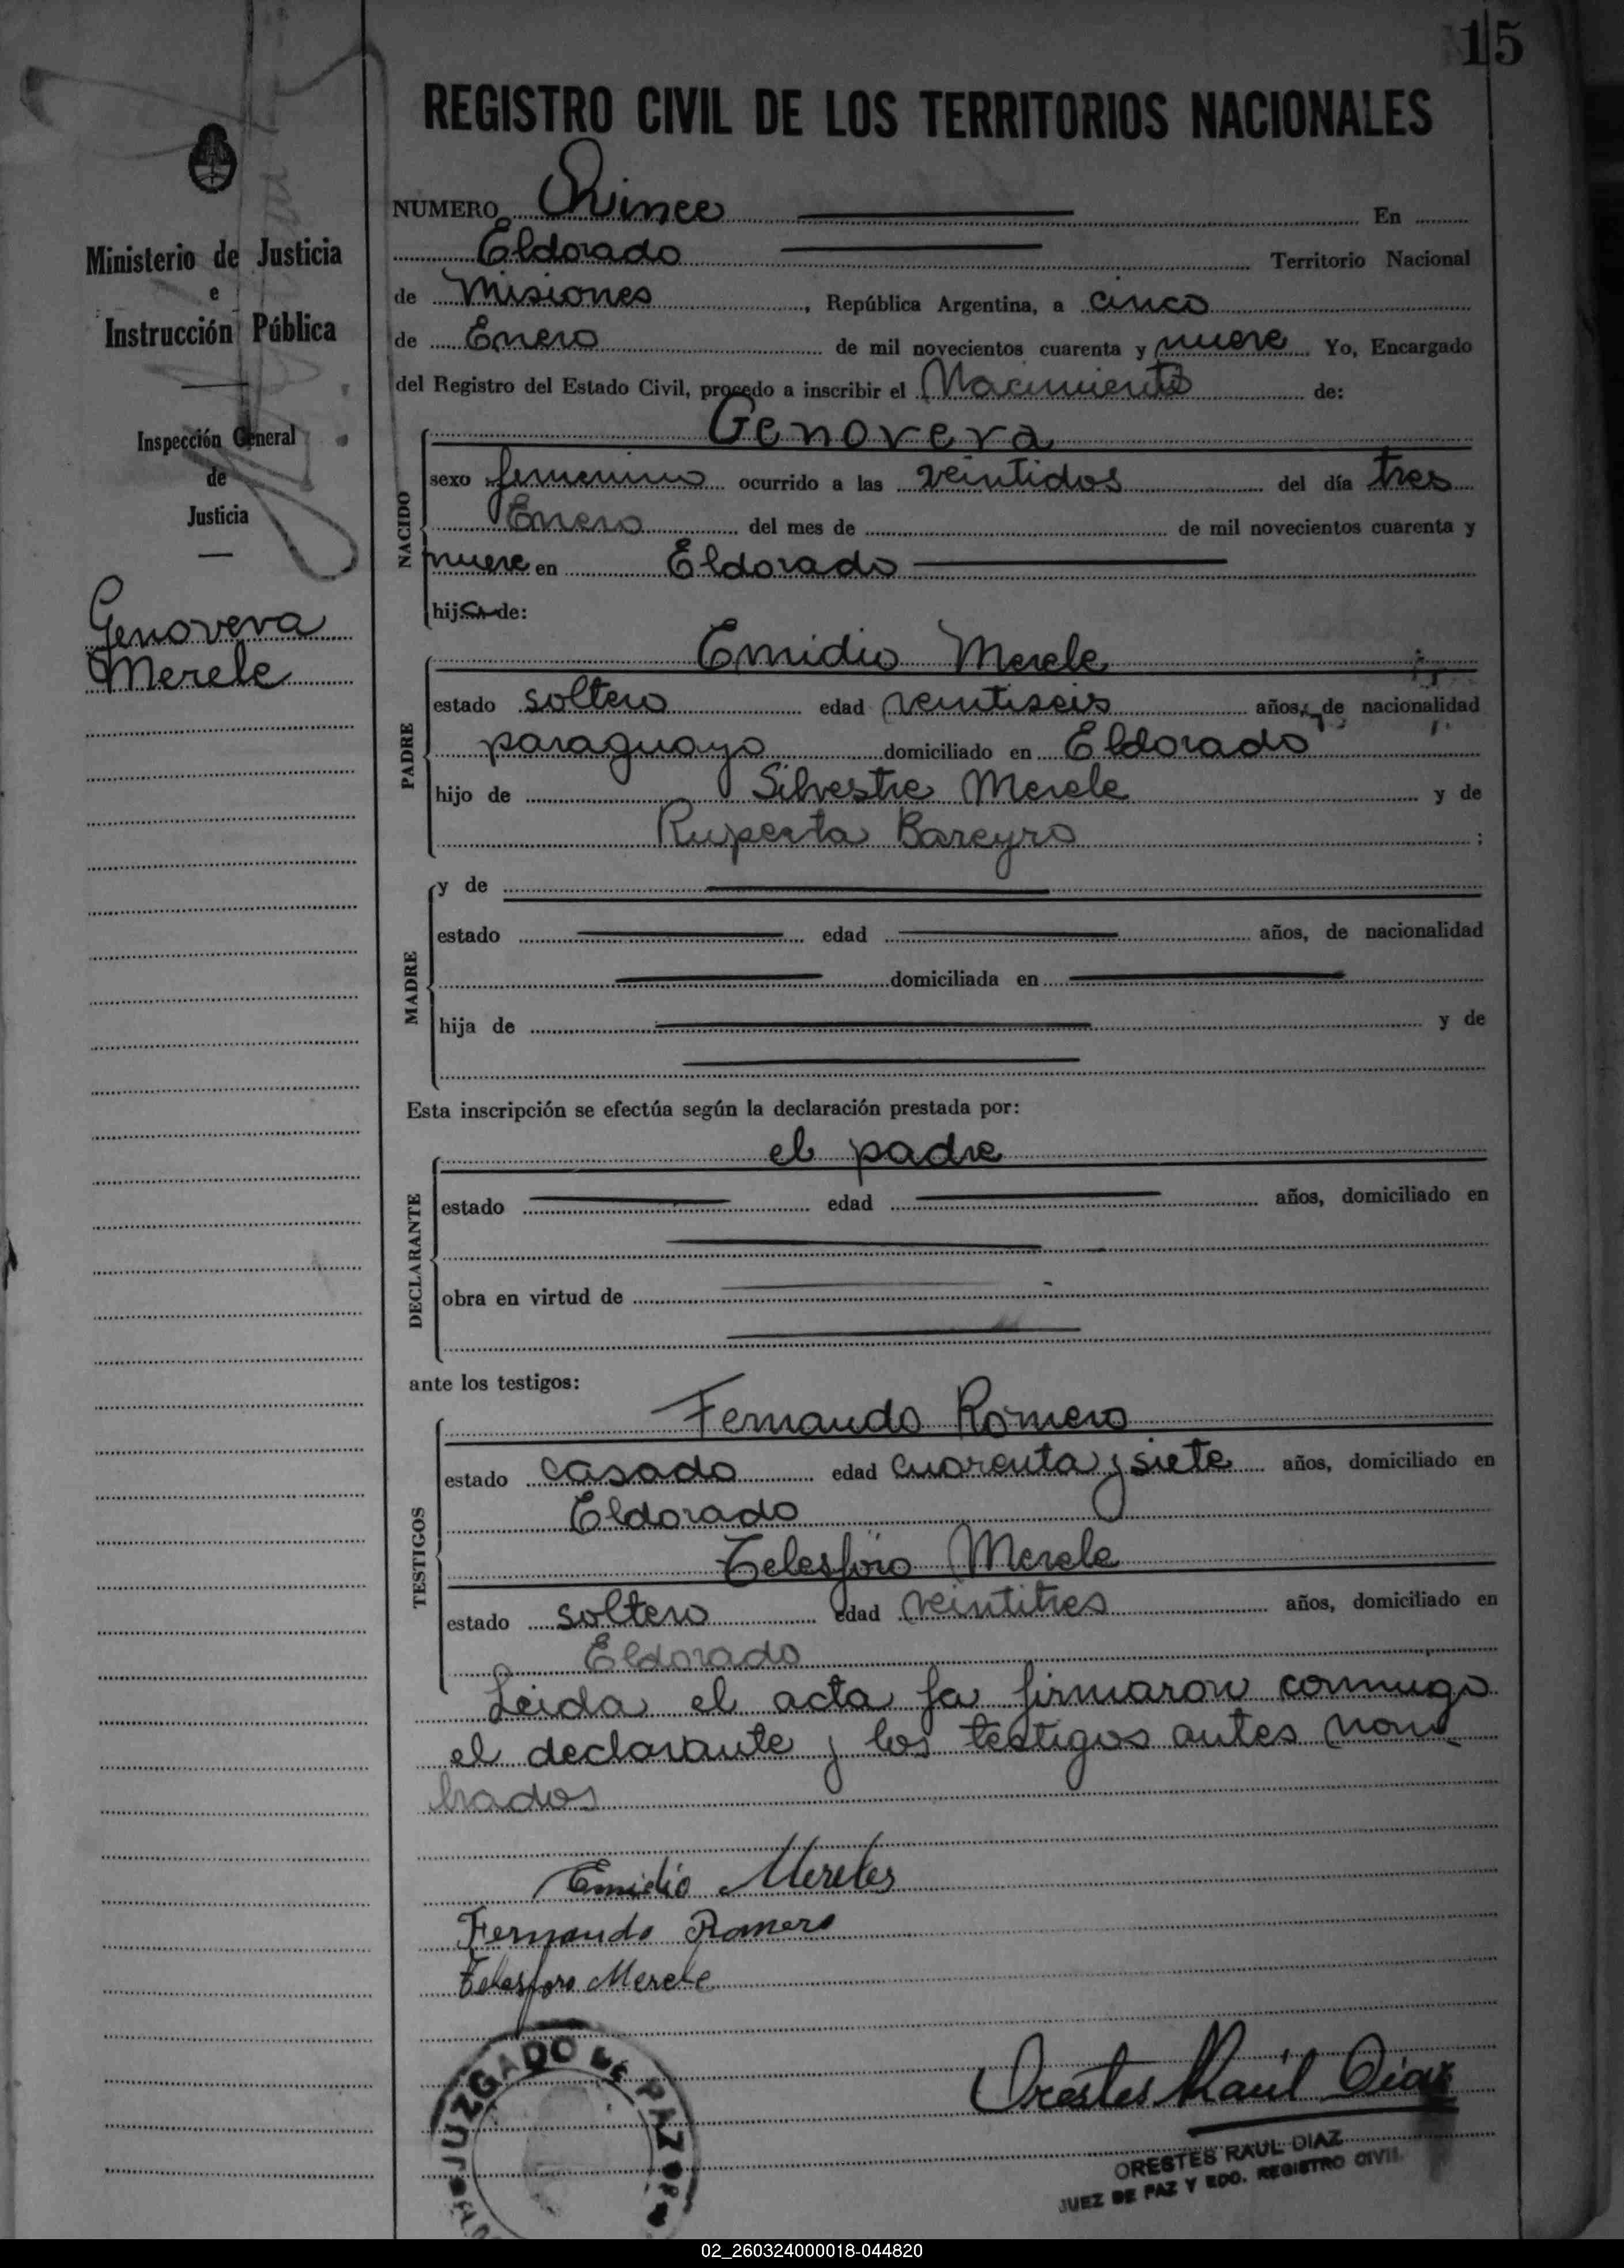 15
REGISTRO CIVIL DE LOS TERRITORIOS NACIONALES
Ministerio de Justicia
e
Instrucción Pública
Inspección General
de
Justicia
Genoveva
Merele
NUMERO Quince En
Eldorado Territorio Nacional
de Misiones, República Argentina, a cinco
de Enero de mil novecientos cuarenta y nueve Yo, Encargado
del Registro del Estado Civil, procedo a inscribir el Nacimiento de:
NACIDO
Genoveva
sexo femenino ocurrido a las veintidos del día tres
Enero del mes de de mil novecientos cuarenta y
nueve en Eldorado
hija de:
PADRE
Emidio Merele
estado soltero edad veintiseis años, de nacionalidad
paraguayo domiciliado en Eldorado
hijo de Silvestre Merele y de
Ruperta Bareyro ;
MADRE
y de
estado edad años, de nacionalidad
domiciliada en
hija de y de
Esta inscripción se efectúa según la declaración prestada por:
DECLARANTE
el padre
estado edad años, domiciliado en
obra en virtud de
ante los testigos:
TESTIGOS
Fernando Romero
estado casado edad cuarenta y siete años, domiciliado en
Eldorado
Telesforo Merele
estado soltero edad veintitres años, domiciliado en
Eldorado
Leida el acta la firmaron conmigo
el declarante y los testigos antes nom
brados
Emidio Mereles
Fernando Romero
Telesforo Merele
JUZGADO DE PAZ
Orestes Raúl Diaz
ORESTES RAUL DIAZ
JUEZ DE PAZ Y EDO. REGISTRO CIVIL
02_260324000018-044820